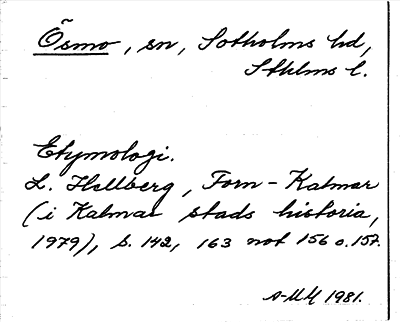 Ösmo, sn, Sotholms hd,
Sthlms l.
Etymologi.
L. Hellberg, Forn-Kalmar
(i Kalmar stads historia,
1979), s. 142, 163 not 156 o. 157.
A-MH 1981.